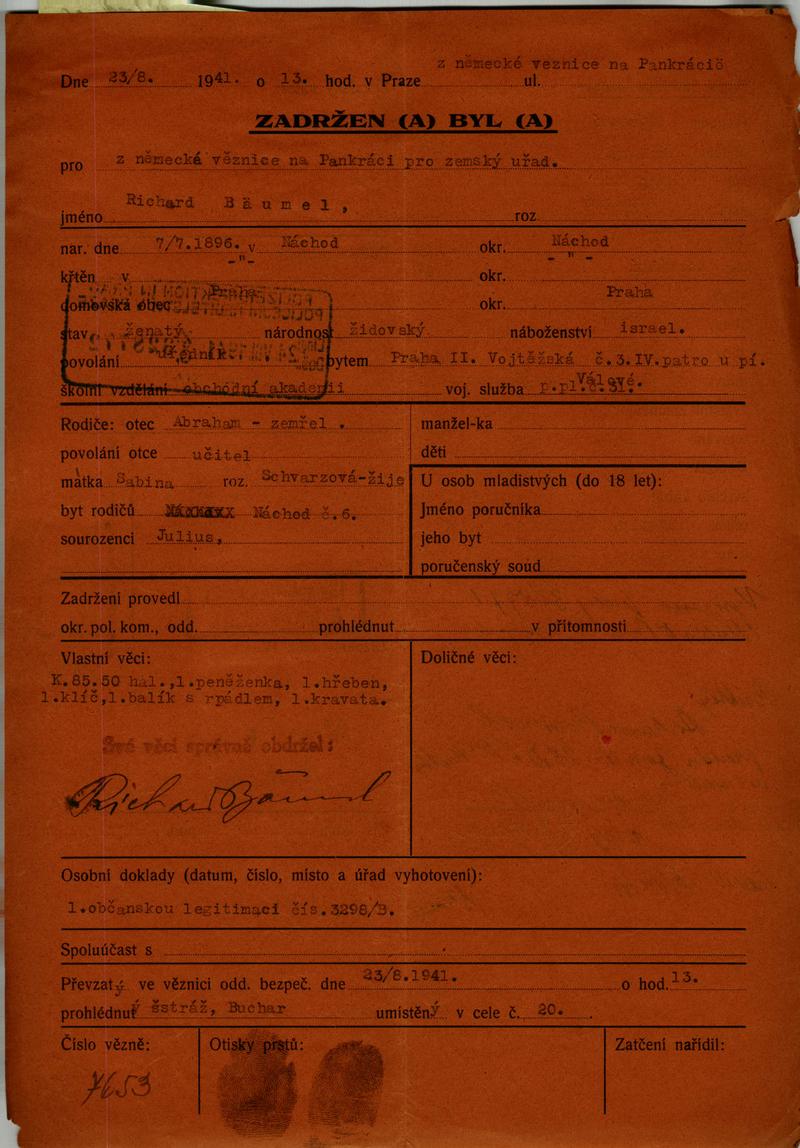 z německé veznice na Pankrácič
Dne 23/8. 1941. o 13. hod. v Praze ul.
ZADRŽEN (A) BYL (A)
pro z německá věznice na Pankráci pro zemský uřad.
jméno Richard Bäumel, roz
nar. dne 7/7.1896. v Náchod okr. Náchod
křtěn v -"- okr. -"-
domovská obec Praha okr. Praha
stav ženatý národnost židovský náboženství israel.
povolání úředník bytem Praha II. Vojtěžská č.3.IV.patro u pí.
Válové.
školní vzdělání obchodní akademii voj. služba p.pl.č.51.
Rodiče: otec Abraham - zemřel .
manžel-ka
povolání otce učitel
děti
matka Sabina roz. Schvarzová-žije
U osob mladistvých (do 18 let):
byt rodičů Náchod č.6.
Jméno poručníka
sourozenci Julius,
jeho byt
poručenský soud
Zadržení provedl
okr. pol. kom., odd. prohlédnut v přítomnosti
Vlastní věci:
Doličné věci:
K.85.50 hal.,1.peněženka, 1.hřeben,
1.klíč,1.balík s rpádlem, 1.kravata.
Své věci správně obdržel:
Richard Bäumel
Osobní doklady (datum, číslo, místo a úřad vyhotovení):
1.občanskou legitimaci čís.3298/B.
Spoluúčast s
Převzatý ve věznici odd. bezpeč. dne 23/8.1941. o hod. 13.
prohlédnutý šstráž, Buchar umístěný v cele č. 20.
Číslo vězně: Otisky prstů: Zatčení nařídil:
7653